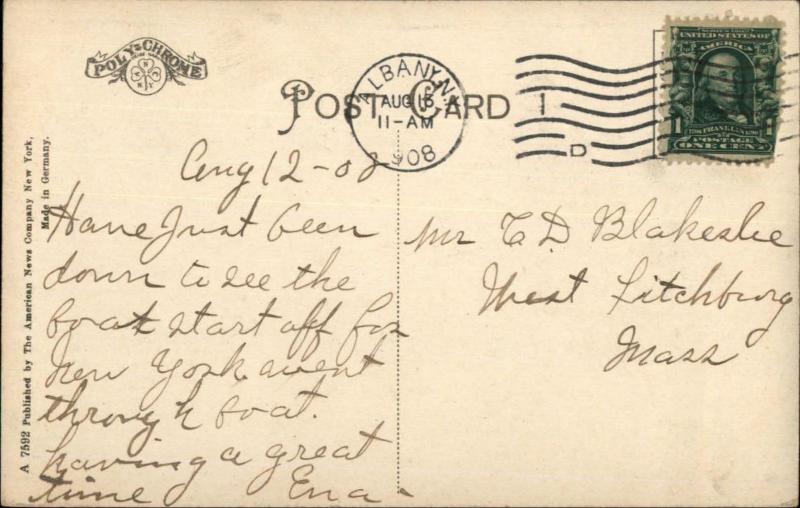 POLY-CHROME
POST CARD
ALBANY, N.Y.
AUG 15
11-AM
1908
1
D
UNITED STATES OF
AMERICA
FRANKLIN
POSTAGE
1 1
ONE CENT
A 7592 Published by The American News Company New York,
Made in Germany.
Aug 12-08
Have Just been
down to see the
boat start off for
New York. went
through boat.
having a great
time Ena-
Mr C D Blakeslee
West Fitchburg
Mass